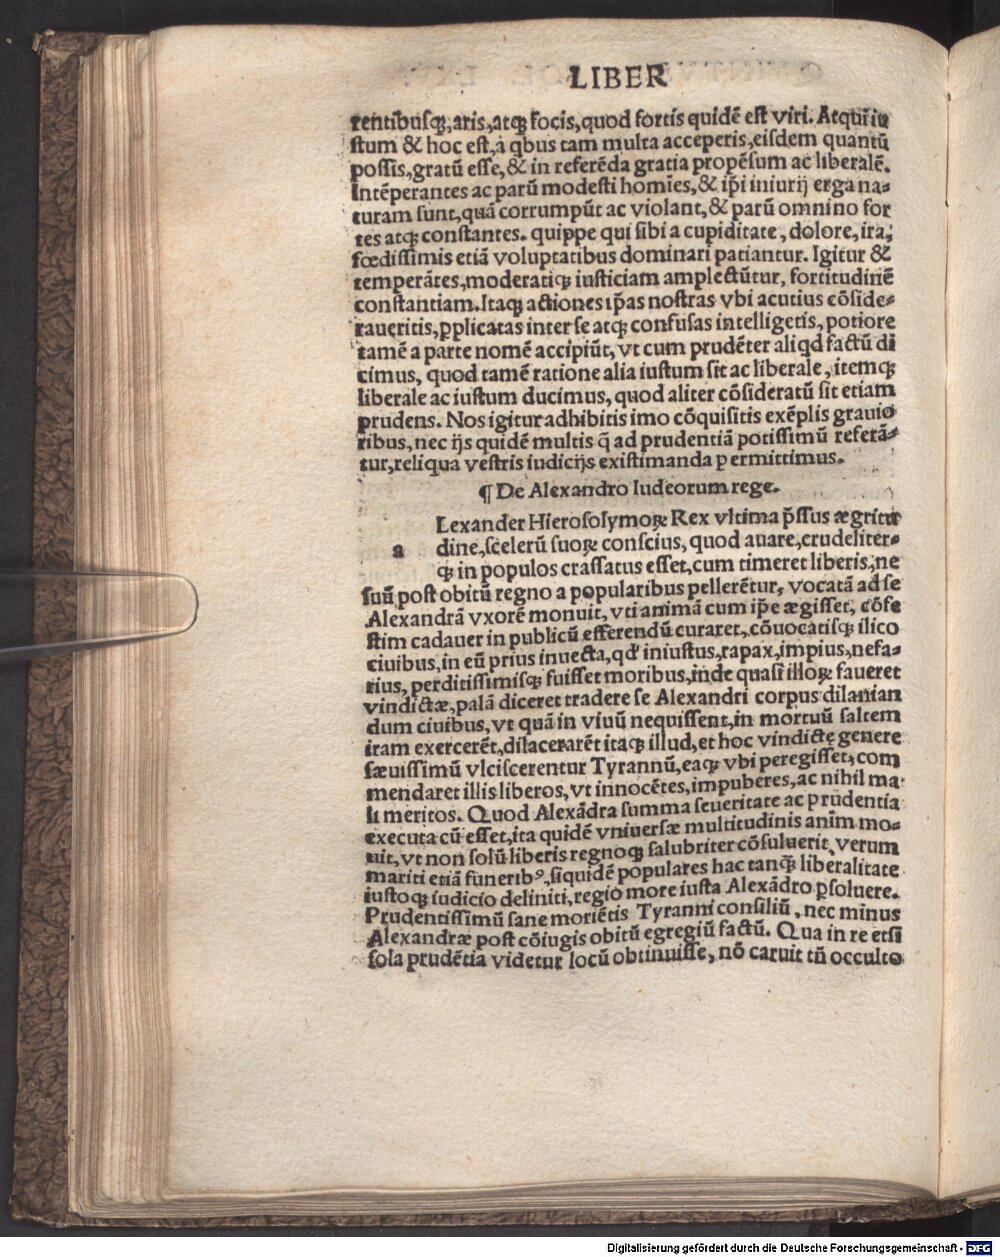 LIBER
rentibusq;,aris,atq; focis,quod fortis quidē est viri. Atqui iu
stum & hoc est,a qbus tam multa acceperis,eisdem quantū
possis,gratū esse,& in referēda gratia propēsum ac liberalē.
Intēperantes ac parū modesti homīes,& ip̄i iniurij erga na-
turam sunt,quā corrumpūt ac violant,& parū omnino for
tes atq; constantes. quippe qui sibi a cupiditate, dolore, ira,
fœdissimis etiā voluptatibus dominari patiantur. Igitur &
temperātes,moderatiq; iusticiam amplectūtur, fortitudinē
constantiam.Itaq; actiones ip̄as nostras vbi acutius cōside-
raueritis,ꝑplicatas inter se atq; confusas intelligetis,potiore
tamē a parte nomē accipiūt, vt cum prudēter aliqd factū di
cimus, quod tamē ratione alia iustum sit ac liberale, itemq;
liberale ac iustum ducimus, quod aliter cōsideratū sit etiam
prudens. Nos igitur adhibitis imo cōquisitis exēplis grauio
ribus, nec ijs quidē multis q̄ ad prudentiā potissimū referā-
tur,reliqua vestris iudicijs existimanda permittimus.
¶ De Alexandro Iudeorum rege.
a Lexander Hierosolymoꝝ Rex vltima p̄ssus ægritu
dine,scelerū suoꝝ conscius, quod auare,crudeliter-
q; in populos crassatus esset,cum timeret liberis,ne
suū post obitū regno a popularibus pellerētur, vocatā ad se
Alexandrā vxorē monuit, vti animā cum ip̄e ægisset, cōfe
stim cadauer in publicū efferendū curaret, cōuocatisq; ilico
ciuibus, in eū prius inuecta,qd' iniustus,rapax,impius,nefa-
rius, perditissimisq; fuisset moribus,inde quasi illoꝝ faueret
vindictæ, palā diceret tradere se Alexandri corpus dilanian
dum ciuibus, vt quā in viuū nequissent,in mortuū saltem
iram exercerēt,dilacerarēt itaq; illud,et hoc vindictę genere
sæuissimū vlciscerentur Tyrannū,eaq; vbi peregisset, com
mendaret illis liberos, vt innocētes, impuberes, ac nihil ma-
li meritos. Quod Alexādra summa seueritate ac prudentia
executa cū esset, ita quidē vniuersæ multitudinis anim̄ mo-
uit, vt non solū liberis regnoq; salubriter cōsuluerit, verum
mariti etiā funeribꝰ, siquidē populares hac tanq̄ liberalitate
iustoq; iudicio deliniti,regio more iusta Alexādro ꝑsoluere.
Prudentissimū sane moriētis Tyranni consiliū, nec minus
Alexandræ post cōiugis obitū egregiū factū. Qua in re etsi
sola prudētia videtur locū obtinuisse, nō caruit tn̄ occulto
Digitalisierung gefördert durch die Deutsche Forschungsgemeinschaft - DFG